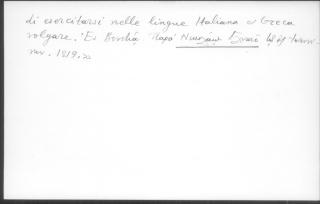 di esercitarsi nelle lingue Italiana e Greca
volgare. Ἐν Βενετίᾳ Παρὰ Νικολάῳ Γλυκεῖ
1819.